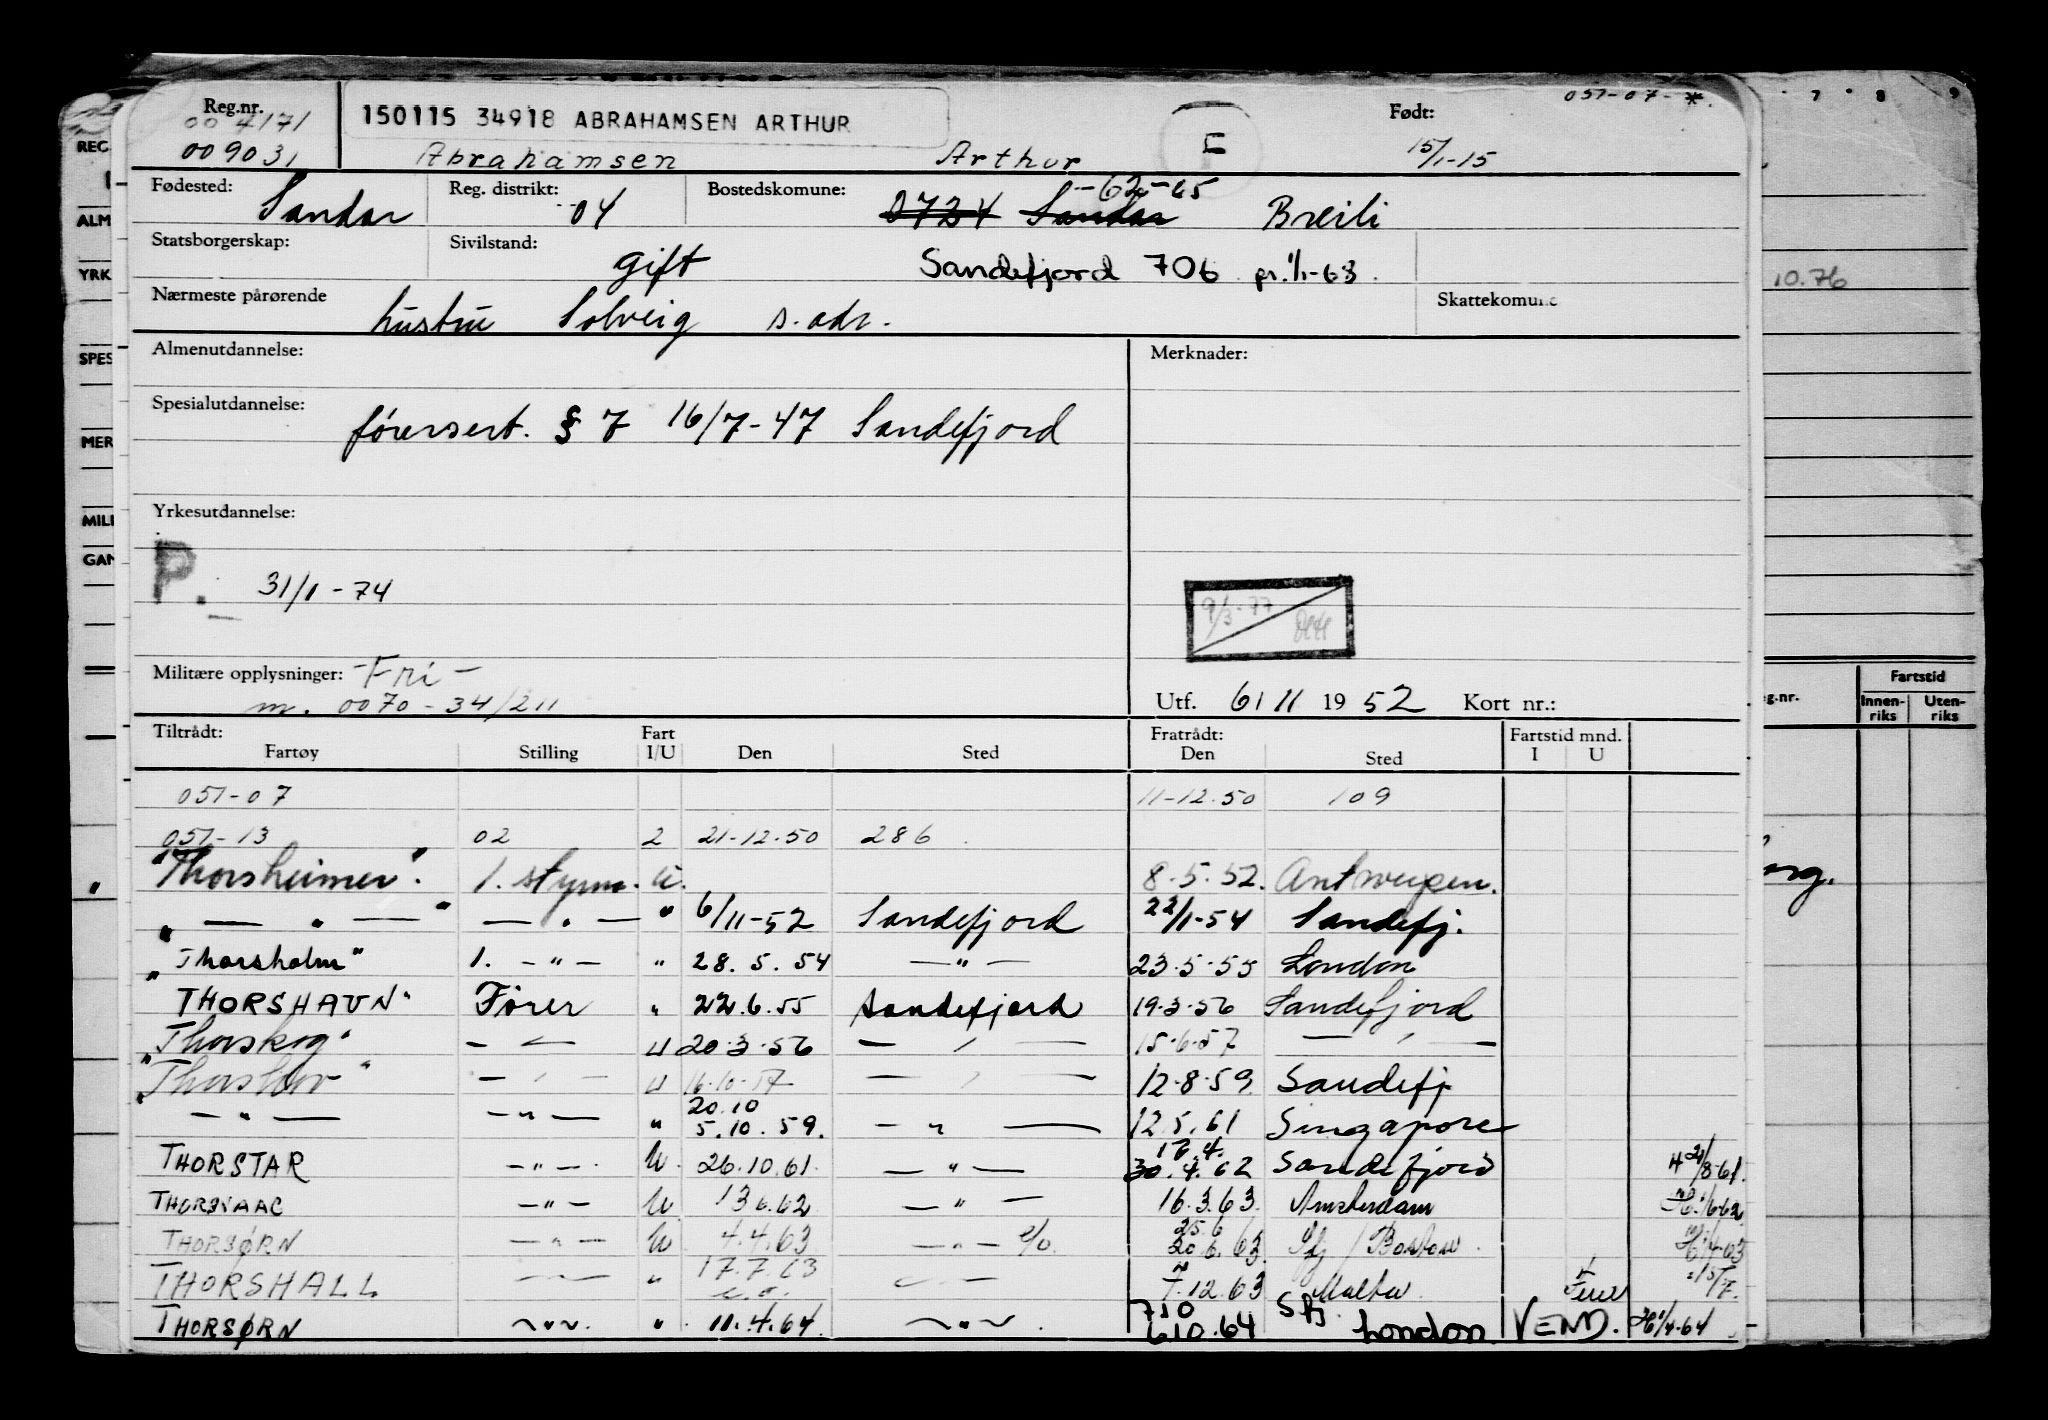 051-07-*.
Reg.nr. 150115 34918 ABRAHAMSEN ARTHUR Født:
00 4171
009031 Abrahamsen Arthur E 15/1-15
Fødested: Sandar Reg. distrikt: 04 Bostedskommune: 0724 Sandar -62-65 Breili
Statsborgerskap: Sivilstand: gift Sandefjord 706 pr. 1/1-63.
Nærmeste pårørende hustru Solveig s. adr. Skattekomune
Almenutdannelse: Merknader:
Spesialutdannelse: førersert. § 7 16/7-47 Sandefjord
Yrkesutdannelse:
P. 31/1-74
9/3-77
Militære opplysninger: -Fri-
m. 0070-34/211 Utf. 6/11 1952 Kort nr.:
Tiltrådt: Fart Fratrådt: Fartstid mnd.
Fartøy Stilling I/U Den Sted Den Sted I U
051-07 11-12.50 109
051-13 02 2 21-12.50 286
"Thorsheimer". 1. styrm. u. 8.5.52. Antwerpen.
" — " — " — " — " 6/11-52 Sandefjord 22/1-54 Sandefj.
"Thorsholm" 1. -"- " 28.5.54 —"— 23.5.55 London
"THORSHAVN" Fører " 22.6.55 Sandefjord 19.3.56 Sandefjord
"Thorskog" - — U 20.3.56 — ' — 15.6.57 — ' —
"Thorshov" — ' — U 16.10.57 — ' — 12.8.59 Sandefj
— " — —"— " 20.10 5.10.59. — " — 12.5.61 Singapore
THORSTAR —"—. U. 26.10.61. — " — 17.4. 30.4.62 Sandefjord H 21/8-61.
THORSNAAG —"— U. 13.6.62 — " — 16.3.63. Amsterdam 1/6-62
THORSØRN —"— U 4.4.63 —"— e/o. 25.6 20.6.63 Sfj / Boston. 1/4-63
THORSHALL —"— " 17.7.63 e.o. — 7.12.63 Malta. 15/7.
THORSØRN ~"~. " 11.4.64. ~"~. 7.10 6.10.64 Sfj. London. VEND. 1/4-64
REG.
ALM
YRK
SPES
MER
MILI
GAN
7 8 9
10.76
Fartstid
g.nr. Innen-riks Uten-riks
org.